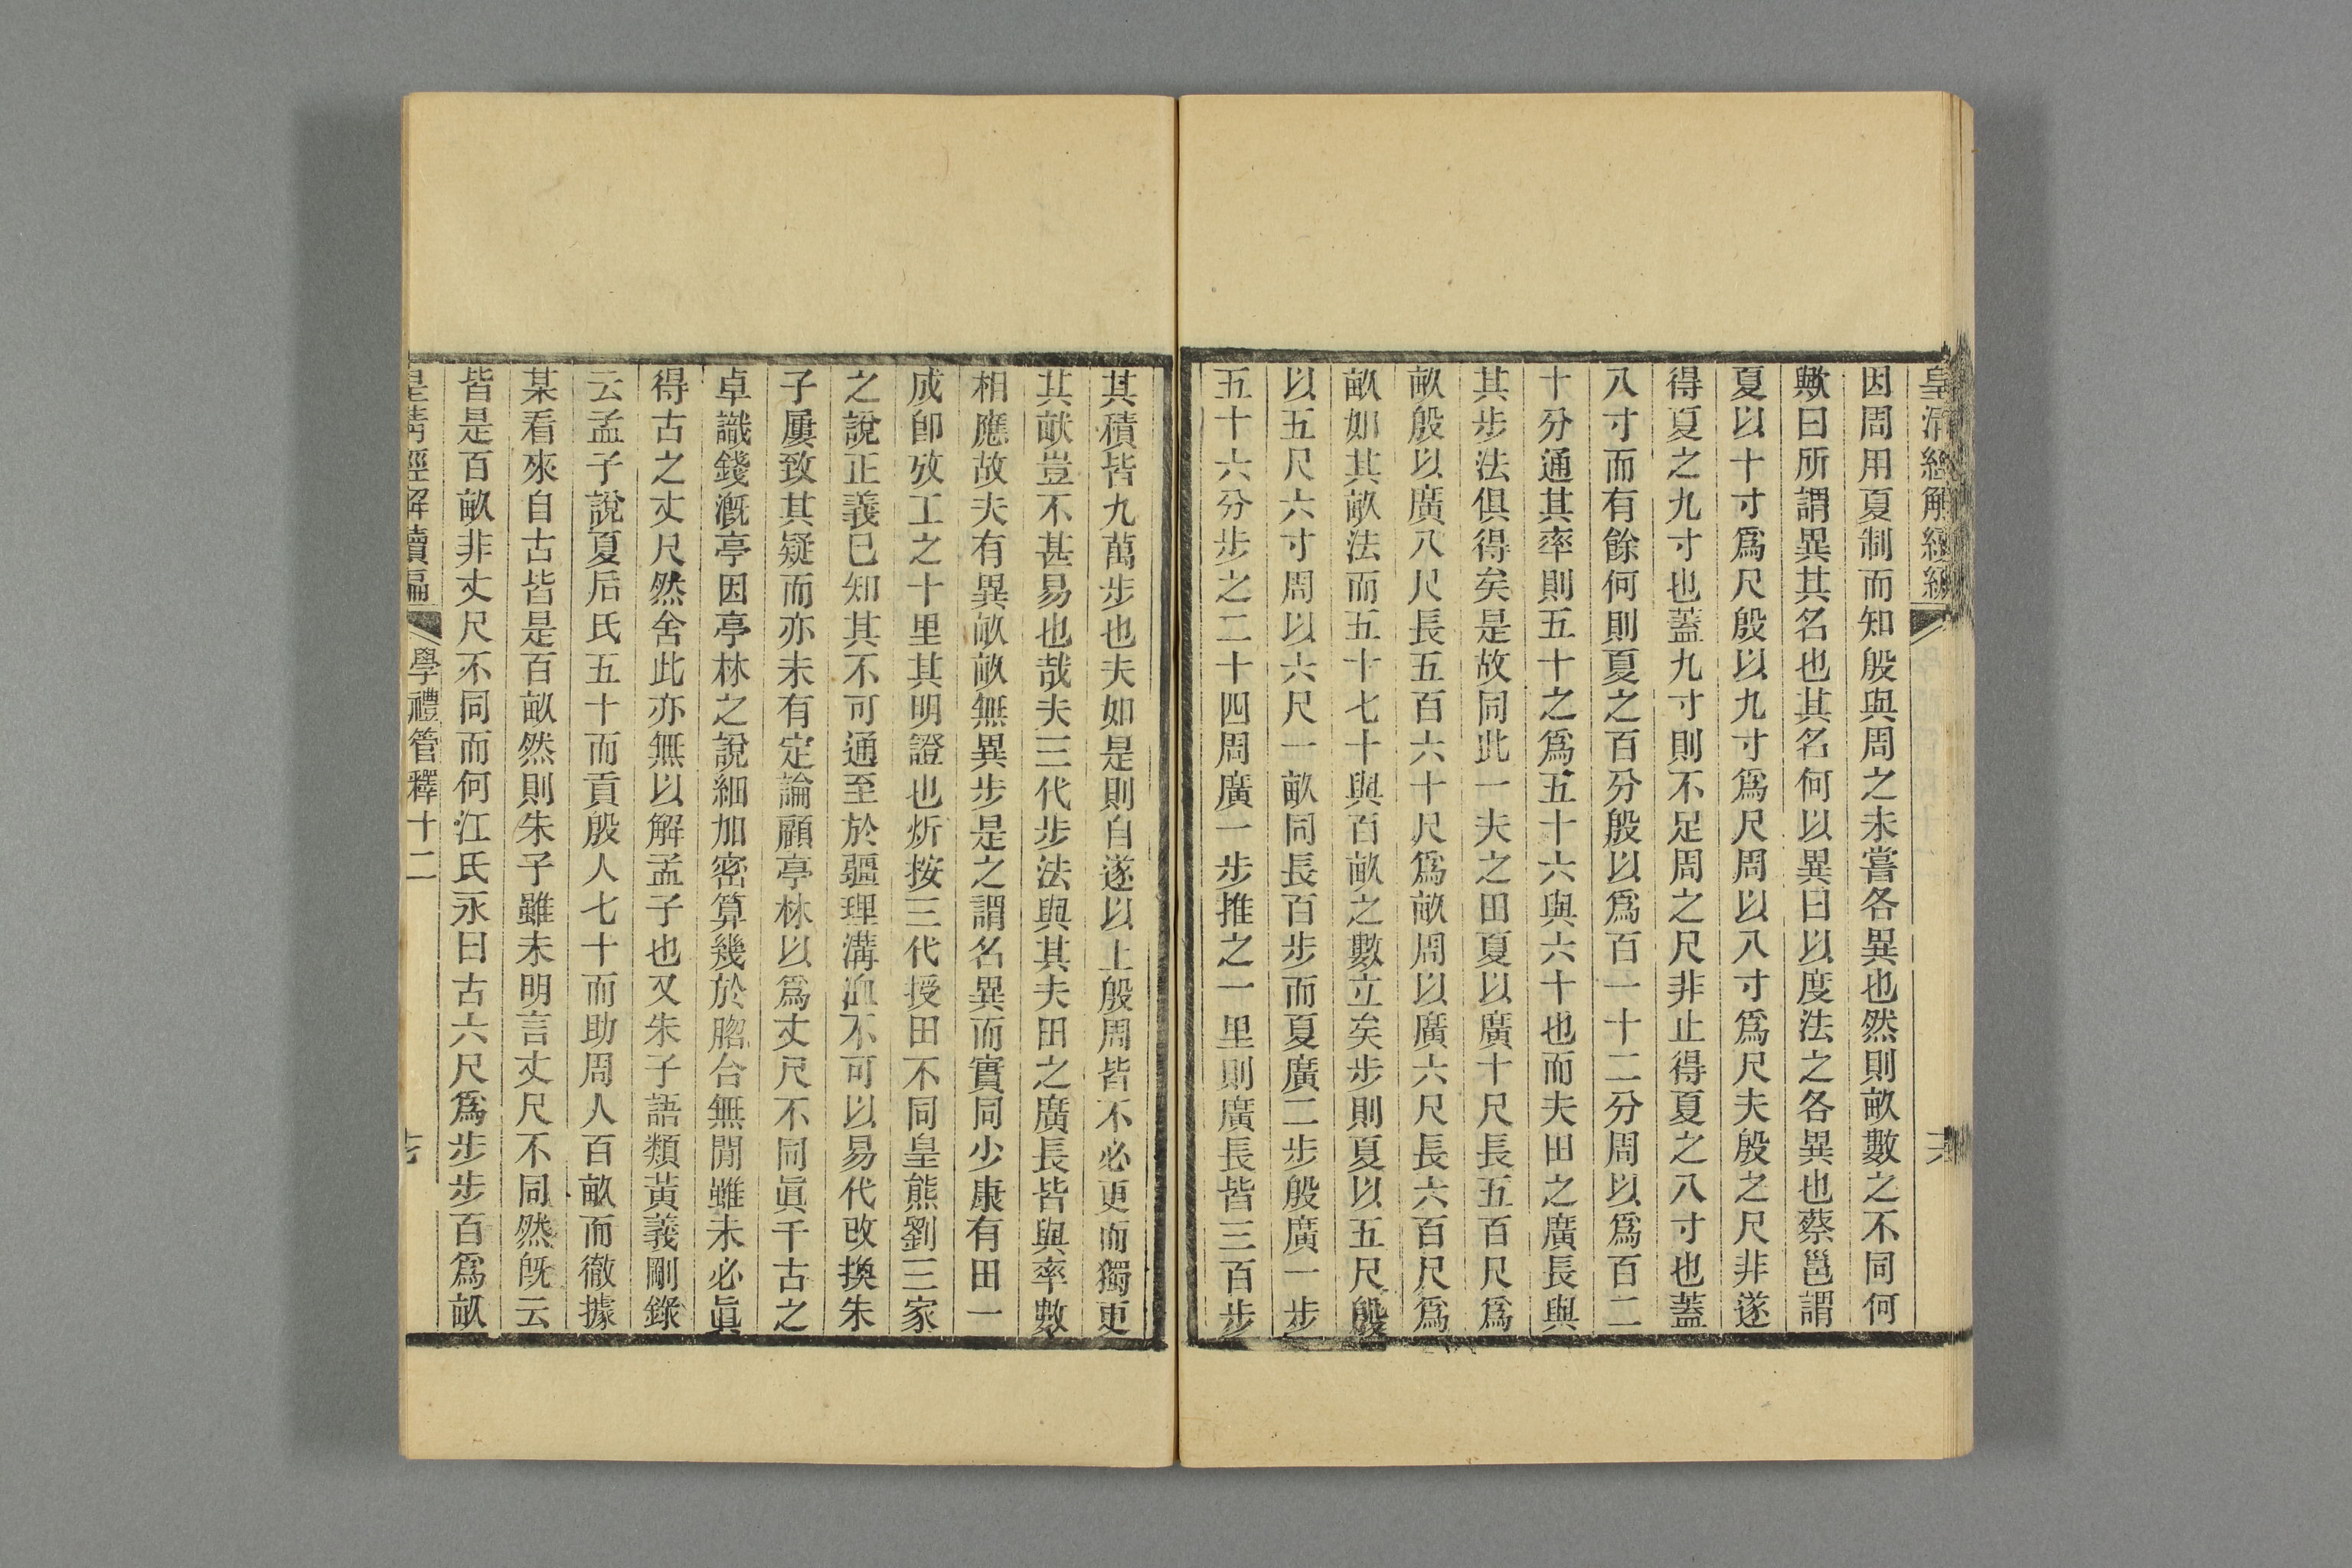 皇清經解續編
六
因周用夏制而知殷與周之未嘗各異也然則畝數之不同何
歟曰所謂異其名也其名何以異曰以度法之各異也蔡邕謂
夏以十寸爲尺殷以九寸爲尺周以八寸爲尺夫殷之尺非遂
得夏之九寸也蓋九寸則不足周之尺非止得夏之八寸也蓋
八寸而有餘何則夏之百分殷以爲百一十二分周以爲百二
十分通其率則五十之爲五十六與六十也而夫田之廣長與
其步法俱得矣是故同此一夫之田夏以廣十尺長五百尺爲
畝殷以廣八尺長五百六十尺爲畝周以廣六尺長六百尺爲
畝如其畝法而五十七十與百畝之數立矣步則夏以五尺殷
以五尺六寸周以六尺一畝同長百步而夏廣二步殷廣一步
五十六分步之二十四周廣一步推之一里則廣長皆三百步
其積皆九萬步也夫如是則自遂以上殷周皆不必更而獨更
其畝豈不甚易也哉夫三代步法與其夫田之廣長皆與率數
相應故夫有異畝畝無異步是之謂名異而實同少康有田一
成卽攷工之十里其明證也炘按三代授田不同皇熊劉三家
之說正義已知其不可通至於疆理溝洫不可以易代改換朱
子屢致其疑而亦未有定論顧亭林以爲丈尺不同眞千古之
卓識錢漑亭因亭林之說細加密算幾於脗合無閒雖未必眞
得古之丈尺然舍此亦無以解孟子也又朱子語類黃義剛錄
云孟子說夏后氏五十而貢殷人七十而助周人百畝而徹據
某看來自古皆是百畝然則朱子雖未明言丈尺不同然既云
皆是百畝非丈尺不同而何江氏永曰古六尺爲步步百爲畝
皇清經解續編
學禮管釋十二
七